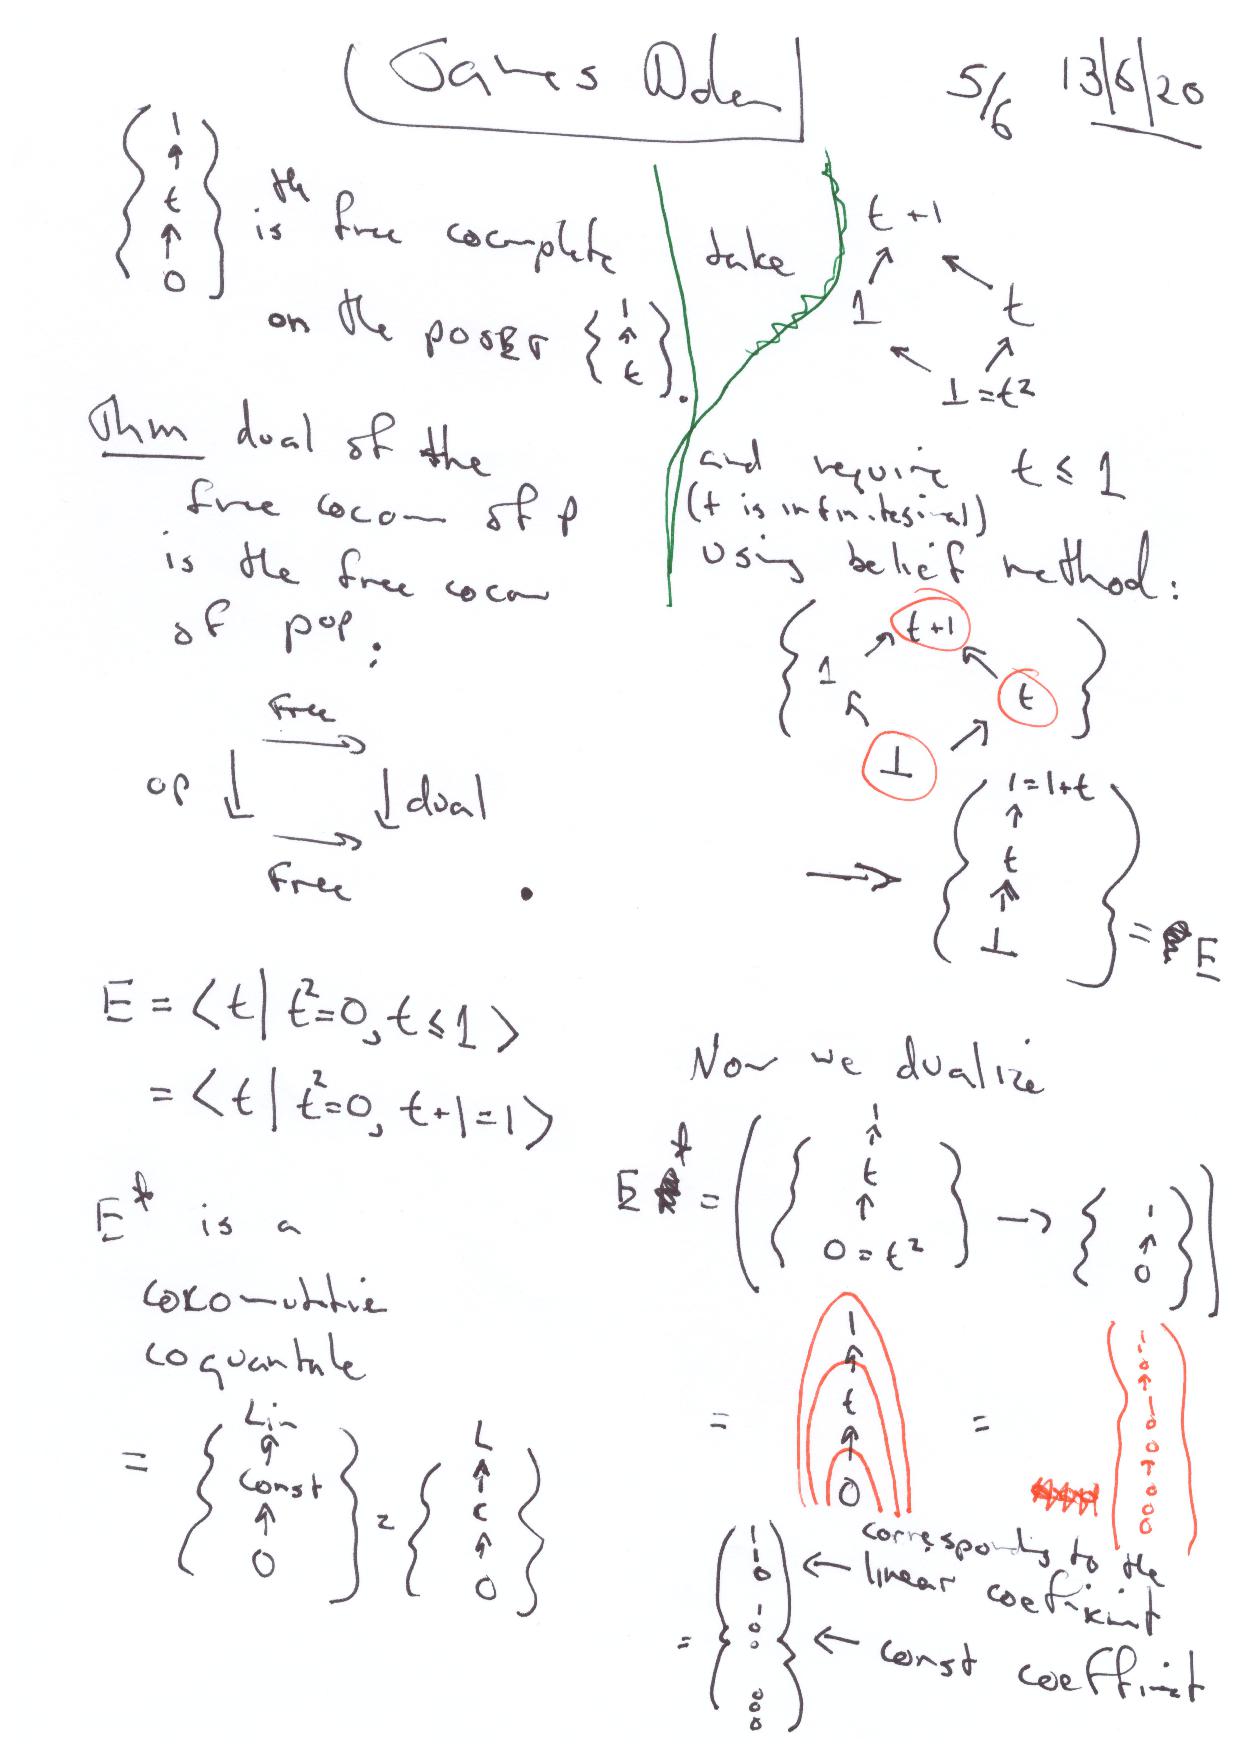 James Dolan
5/6 13/6/20
{ 1 ↑ t ↑ 0 } is the free cocomplete
on the poset { 1 ↑ t }.
Thm dual of the
free cocom of P
is the free cocom
of pop:
Free
op ↓ ↓ dual
Free
E = < t | t²=0, t ≤ 1 >
= < t | t²=0, t+1=1 >
E* is a
coquantale
= { Lin ↑ Const ↑ 0 } = { L ↑ c ↑ 0 }
take
t+1
1 t
⊥=t²
and require t ≤ 1
(t is infinitesimal)
using belief method:
t+1
1 t
⊥
→ { 1=1+t ↑ t ↑ ⊥ } = E
Now we dualize
E* = ( { 1 ↑ t ↑ 0=t² } → { 1 ↑ 0 } )
= 1 ↑ t ↑ 0 = { 1 1 0 ↑ 1 0 0 ↑ 0 0 0 }
= { 1 1 0 1 0 0 0 0 0 }
← corresponding to the
linear coefficient
← const coefficient